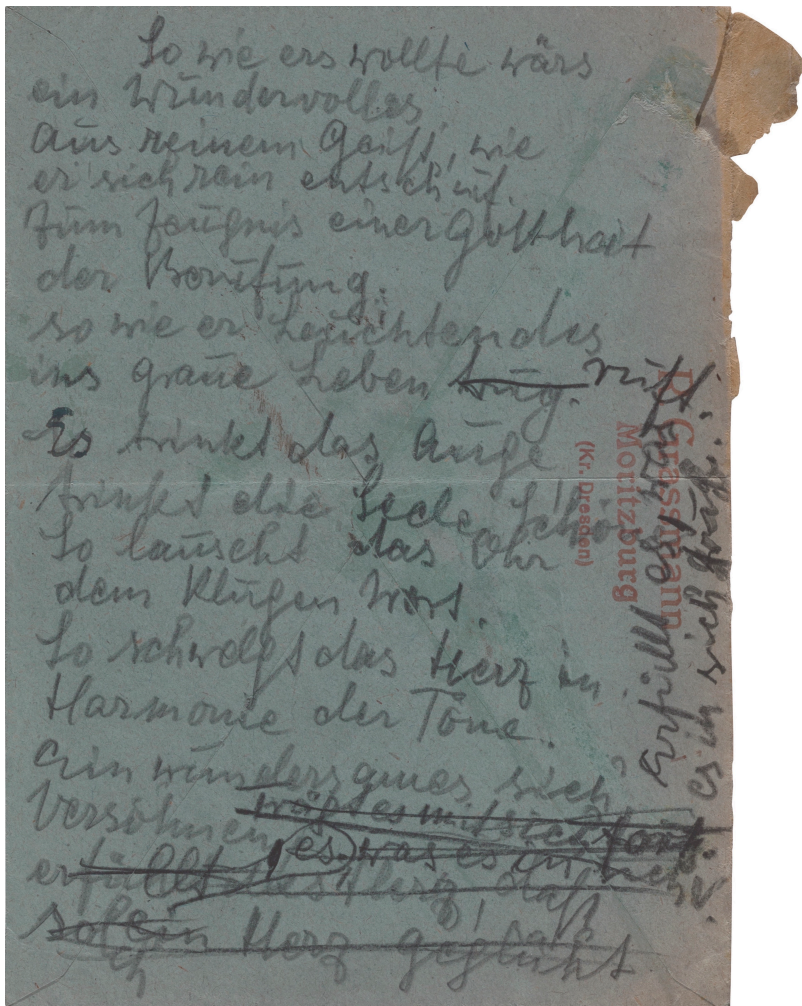 So wie ers wollte wärs
ein Wundervolles
Aus reinem Geist, wie
er sich rein entschuf.
Zum Zeugnis einer Gottheit
der Berufung.
so wie er Leuchtendes
ins graue Leben trug. ruft.
Es trinkt das Auge
trinkt die Seele,
So lauscht das Ohr
dem Klugen Wort.
So schwelgt das Herz in
Harmonie der Töne.
Ein wundersames sich
Versöhnen,
wägt es mit sich fort.
es was es in sich
erfüllt das Herz, daß
solch ein Herz geglüht
Erfüllt es was
es in sich trug.
R. Grassmann
Moritzburg
(Kr. Dresden)